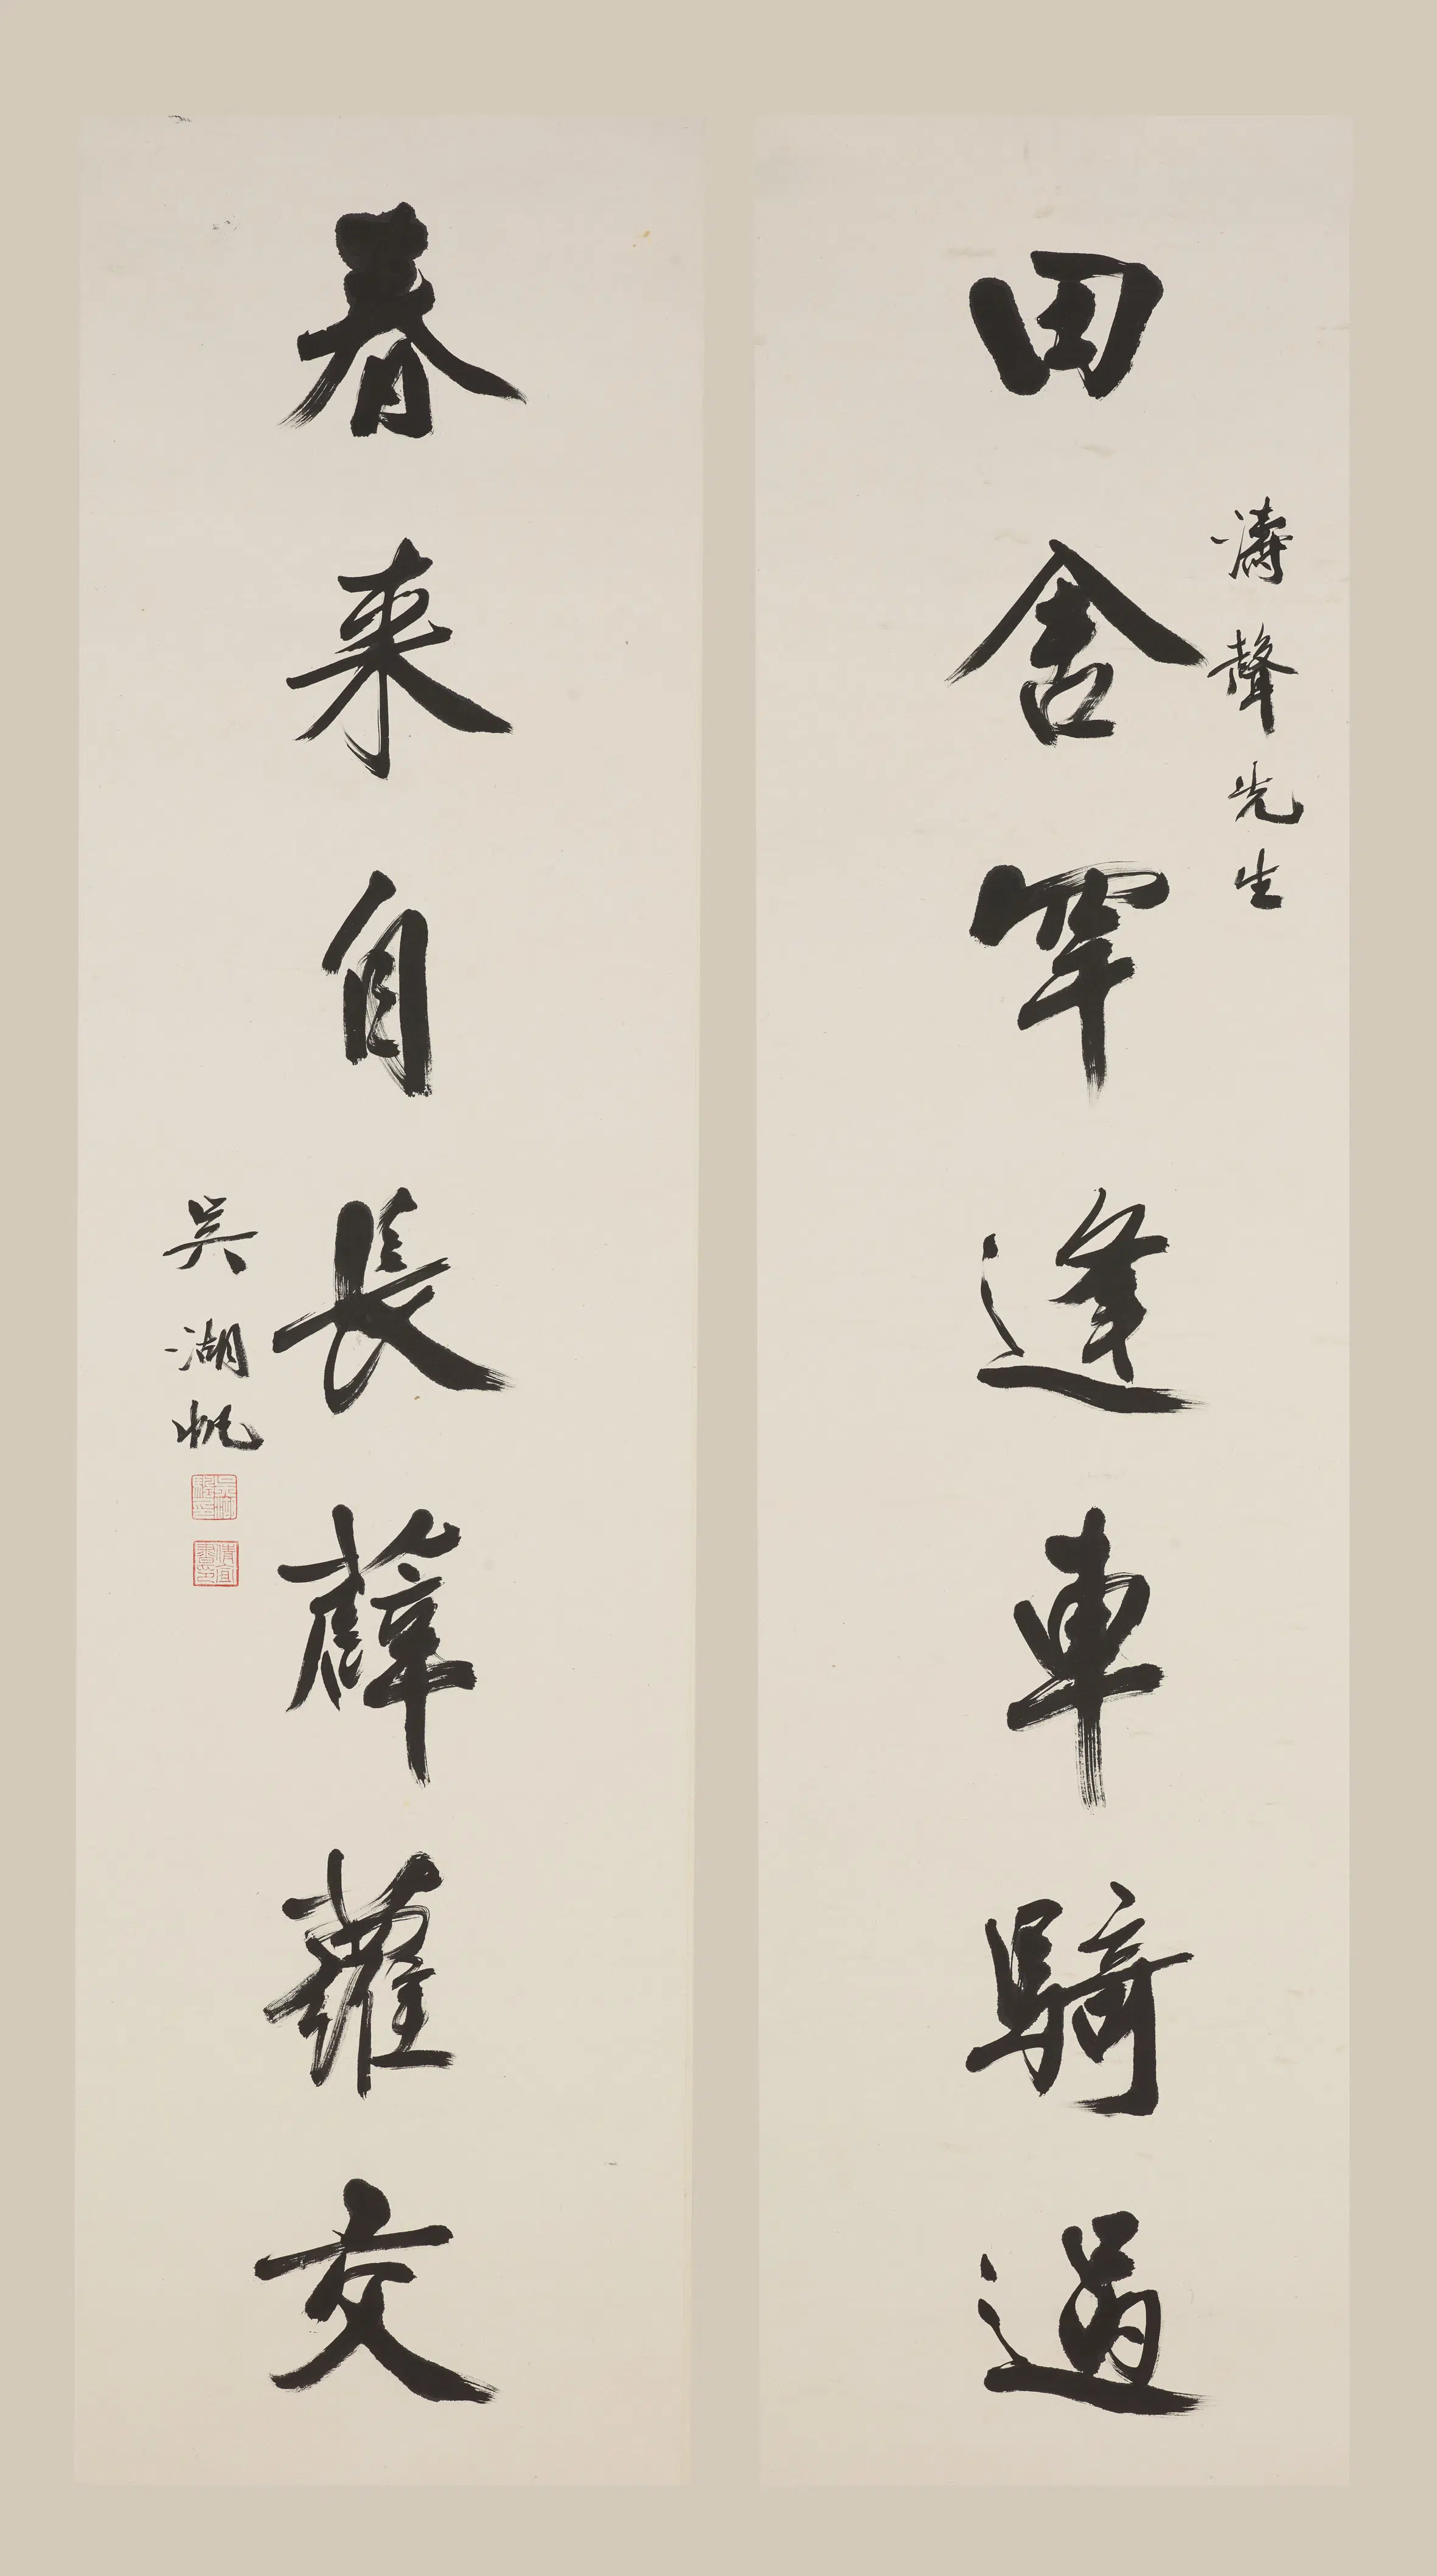 田舍罕逢車騎過
濤聲先生
春来自長薜蘿交
吳湖帆